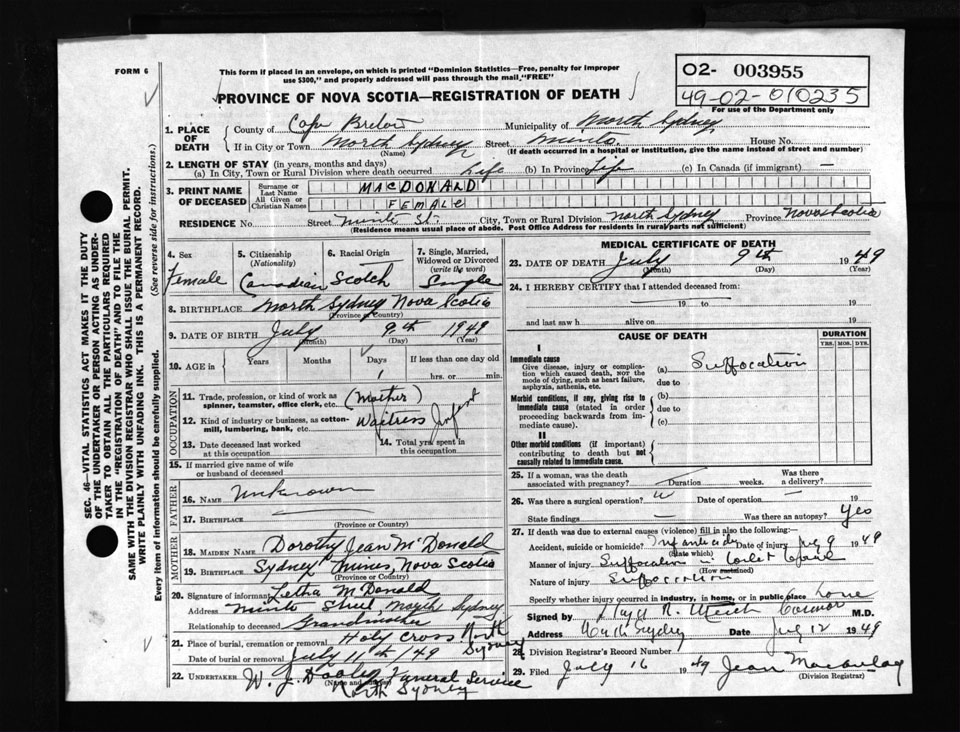 FORM 6
This form if placed in an envelope, on which is printed "Dominion Statistics—Free, penalty for improper
use $300," and properly addressed will pass through the mail "FREE"
PROVINCE OF NOVA SCOTIA—REGISTRATION OF DEATH
02- 003955
49-02-010235
For use of the Department only
1. PLACE OF DEATH
County of Cape Breton Municipality of North Sydney
If in City or Town North Sydney Street Minto House No.
(Name) (If death occurred in a hospital or institution, give the name instead of street and number)
2. LENGTH OF STAY (in years, months and days)
(a) In City, Town or Rural Division where death occurred Life (b) In Province Life (c) In Canada (if immigrant) —
3. PRINT NAME OF DECEASED
Surname or Last Name MACDONALD
All Given or Christian Names FEMALE
RESIDENCE No. Street Minto St. City, Town or Rural Division North Sydney Province Nova Scotia
(Residence means usual place of abode. Post Office Address for residents in rural parts not sufficient)
4. Sex Female
5. Citizenship (Nationality) Canadian
6. Racial Origin Scotch
7. Single, Married, Widowed or Divorced (write the word) Single
8. BIRTHPLACE North Sydney Nova Scotia
(Province or Country)
9. DATE OF BIRTH July 9th 1949
(Month) (Day) (Year)
10. AGE in Years Months Days If less than one day old
1 hrs. or min.
OCCUPATION
11. Trade, profession, or kind of work as spinner, teamster, office clerk, etc. (Mother)
12. Kind of industry or business, as cotton-mill, lumbering, bank, etc. Waitress Infant
13. Date deceased last worked at this occupation
14. Total yrs. spent in this occupation
15. If married give name of wife or husband of deceased
FATHER
16. NAME Unknown
17. BIRTHPLACE —
(Province or Country)
MOTHER
18. MAIDEN NAME Dorothy Jean McDonald
19. BIRTHPLACE Sydney Mines, Nova Scotia
(Province or Country)
20. Signature of informant Letha McDonald
Address Minto Street, North Sydney
Relationship to deceased Grandmother
21. Place of burial, cremation or removal Holy Cross North Sydney
Date of burial or removal July 11th/49
22. UNDERTAKER W. J. Dooley Funeral Service
(Name and address)
North Sydney
MEDICAL CERTIFICATE OF DEATH
23. DATE OF DEATH July 9th 1949
(Month) (Day) (Year)
24. I HEREBY CERTIFY that I attended deceased from:
19 to 19
and last saw h alive on 19
CAUSE OF DEATH
DURATION
YRS. MOS. DYS.
I
Immediate cause
Give disease, injury or complication which caused death, NOR the mode of dying, such as heart failure, asphyxia, asthenia, etc.
(a) Suffocation
due to
Morbid conditions, if any, giving rise to immediate cause (stated in order proceeding backwards from immediate cause).
(b)
due to
(c)
II
Other morbid conditions (if important) contributing to death but not causally related to immediate cause.
25. If a woman, was the death associated with pregnancy? Duration weeks. Was there a delivery?
26. Was there a surgical operation? Date of operation — 19
State findings — Was there an autopsy? Yes
27. If death was due to external causes (violence) fill in also the following:—
Accident, suicide or homicide? Infanticide Date of injury July 9 1949
(State which)
Manner of injury Suffocation in toilet
(How sustained)
Nature of injury Suffocation
Specify whether injury occurred in industry, in home, or in public place home
Signed by Coroner M.D.
Address North Sydney Date July 12 1949
28. Division Registrar's Record Number
29. Filed July 16 1949 Jean Macaulay
(Division Registrar)
SEC. 46—VITAL STATISTICS ACT MAKES IT THE DUTY
OF THE UNDERTAKER OR PERSON ACTING AS UNDER-
TAKER TO OBTAIN ALL THE PARTICULARS REQUIRED
IN THE "REGISTRATION OF DEATH" AND TO FILE THE
SAME WITH THE DIVISION REGISTRAR WHO SHALL ISSUE THE BURIAL PERMIT.
WRITE PLAINLY WITH UNFADING INK. THIS IS A PERMANENT RECORD.
Every item of information should be carefully supplied. (See reverse side for instructions.)